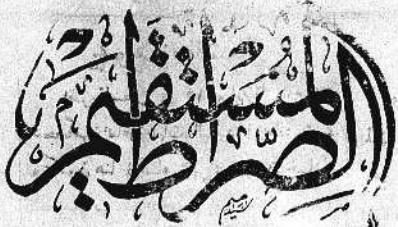 الصِّرَاط المُسْتَقيم